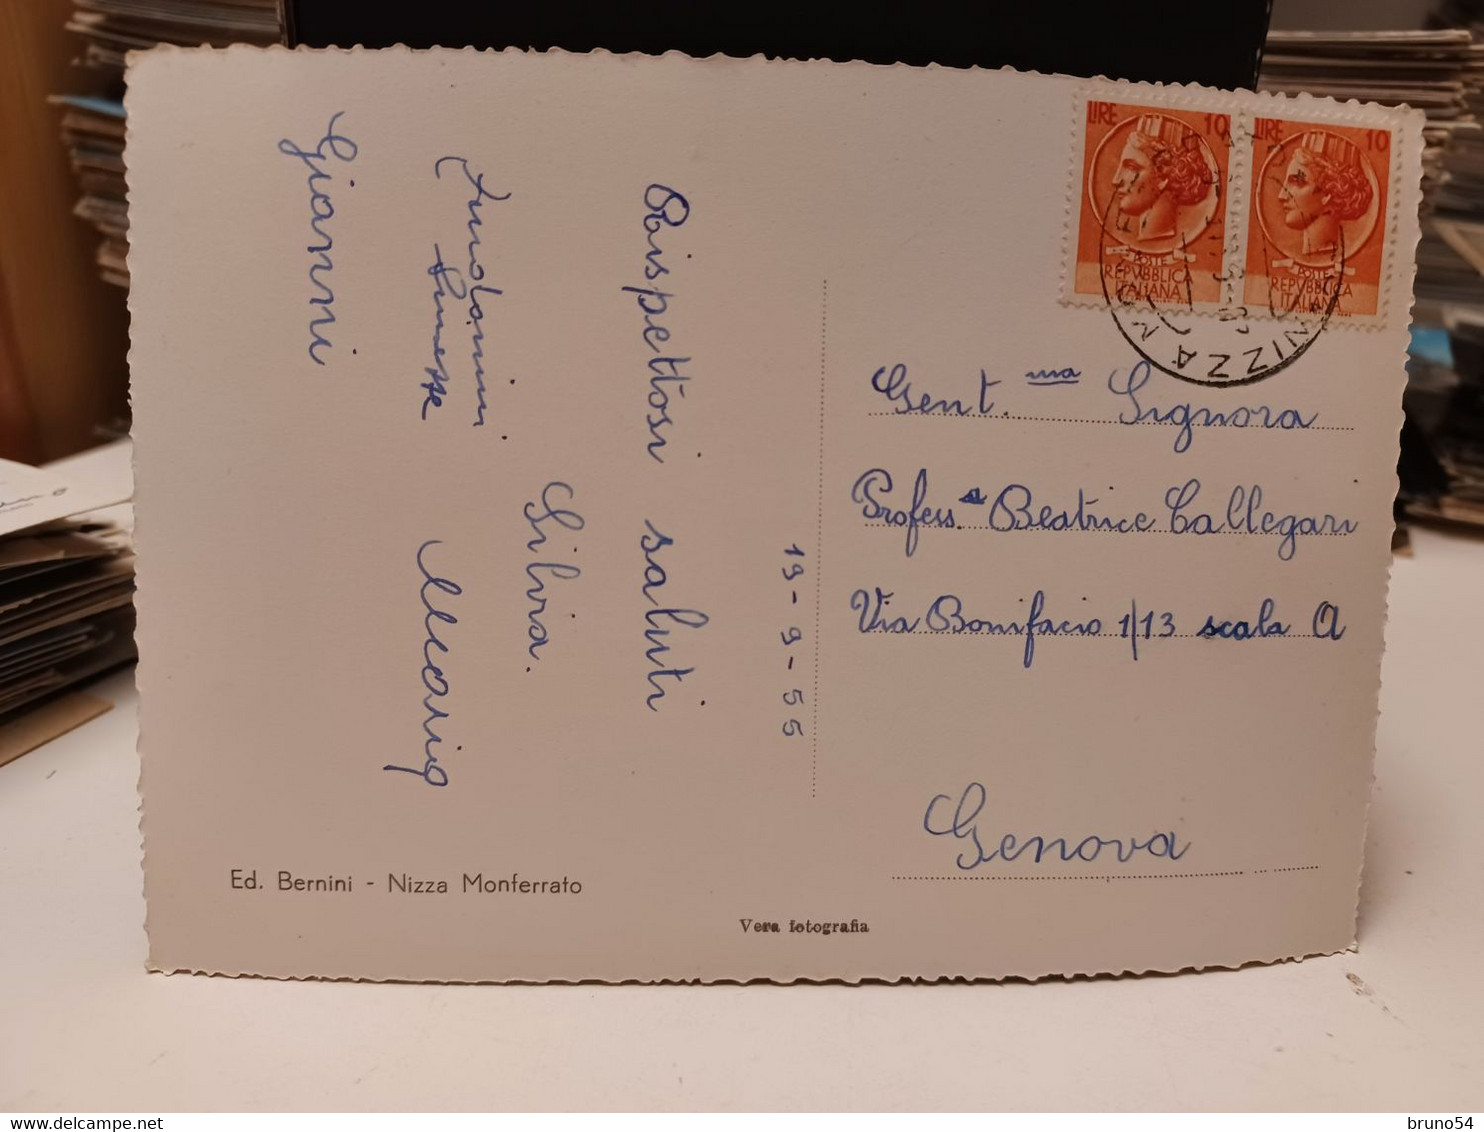 Rispettosi saluti
19-9-55
Silvia.
Mario
Gianni
LIRE 10
POSTE
REPVBBLICA
ITALIANA
LIRE 10
POSTE
REPVBBLICA
ITALIANA
NIZZA MONFERRATO
Gent.ma Signora
Profess.a Beatrice Callegari
Via Bonifacio 1/13 scala A
Genova
Ed. Bernini - Nizza Monferrato
Vera fotografia
bruno54